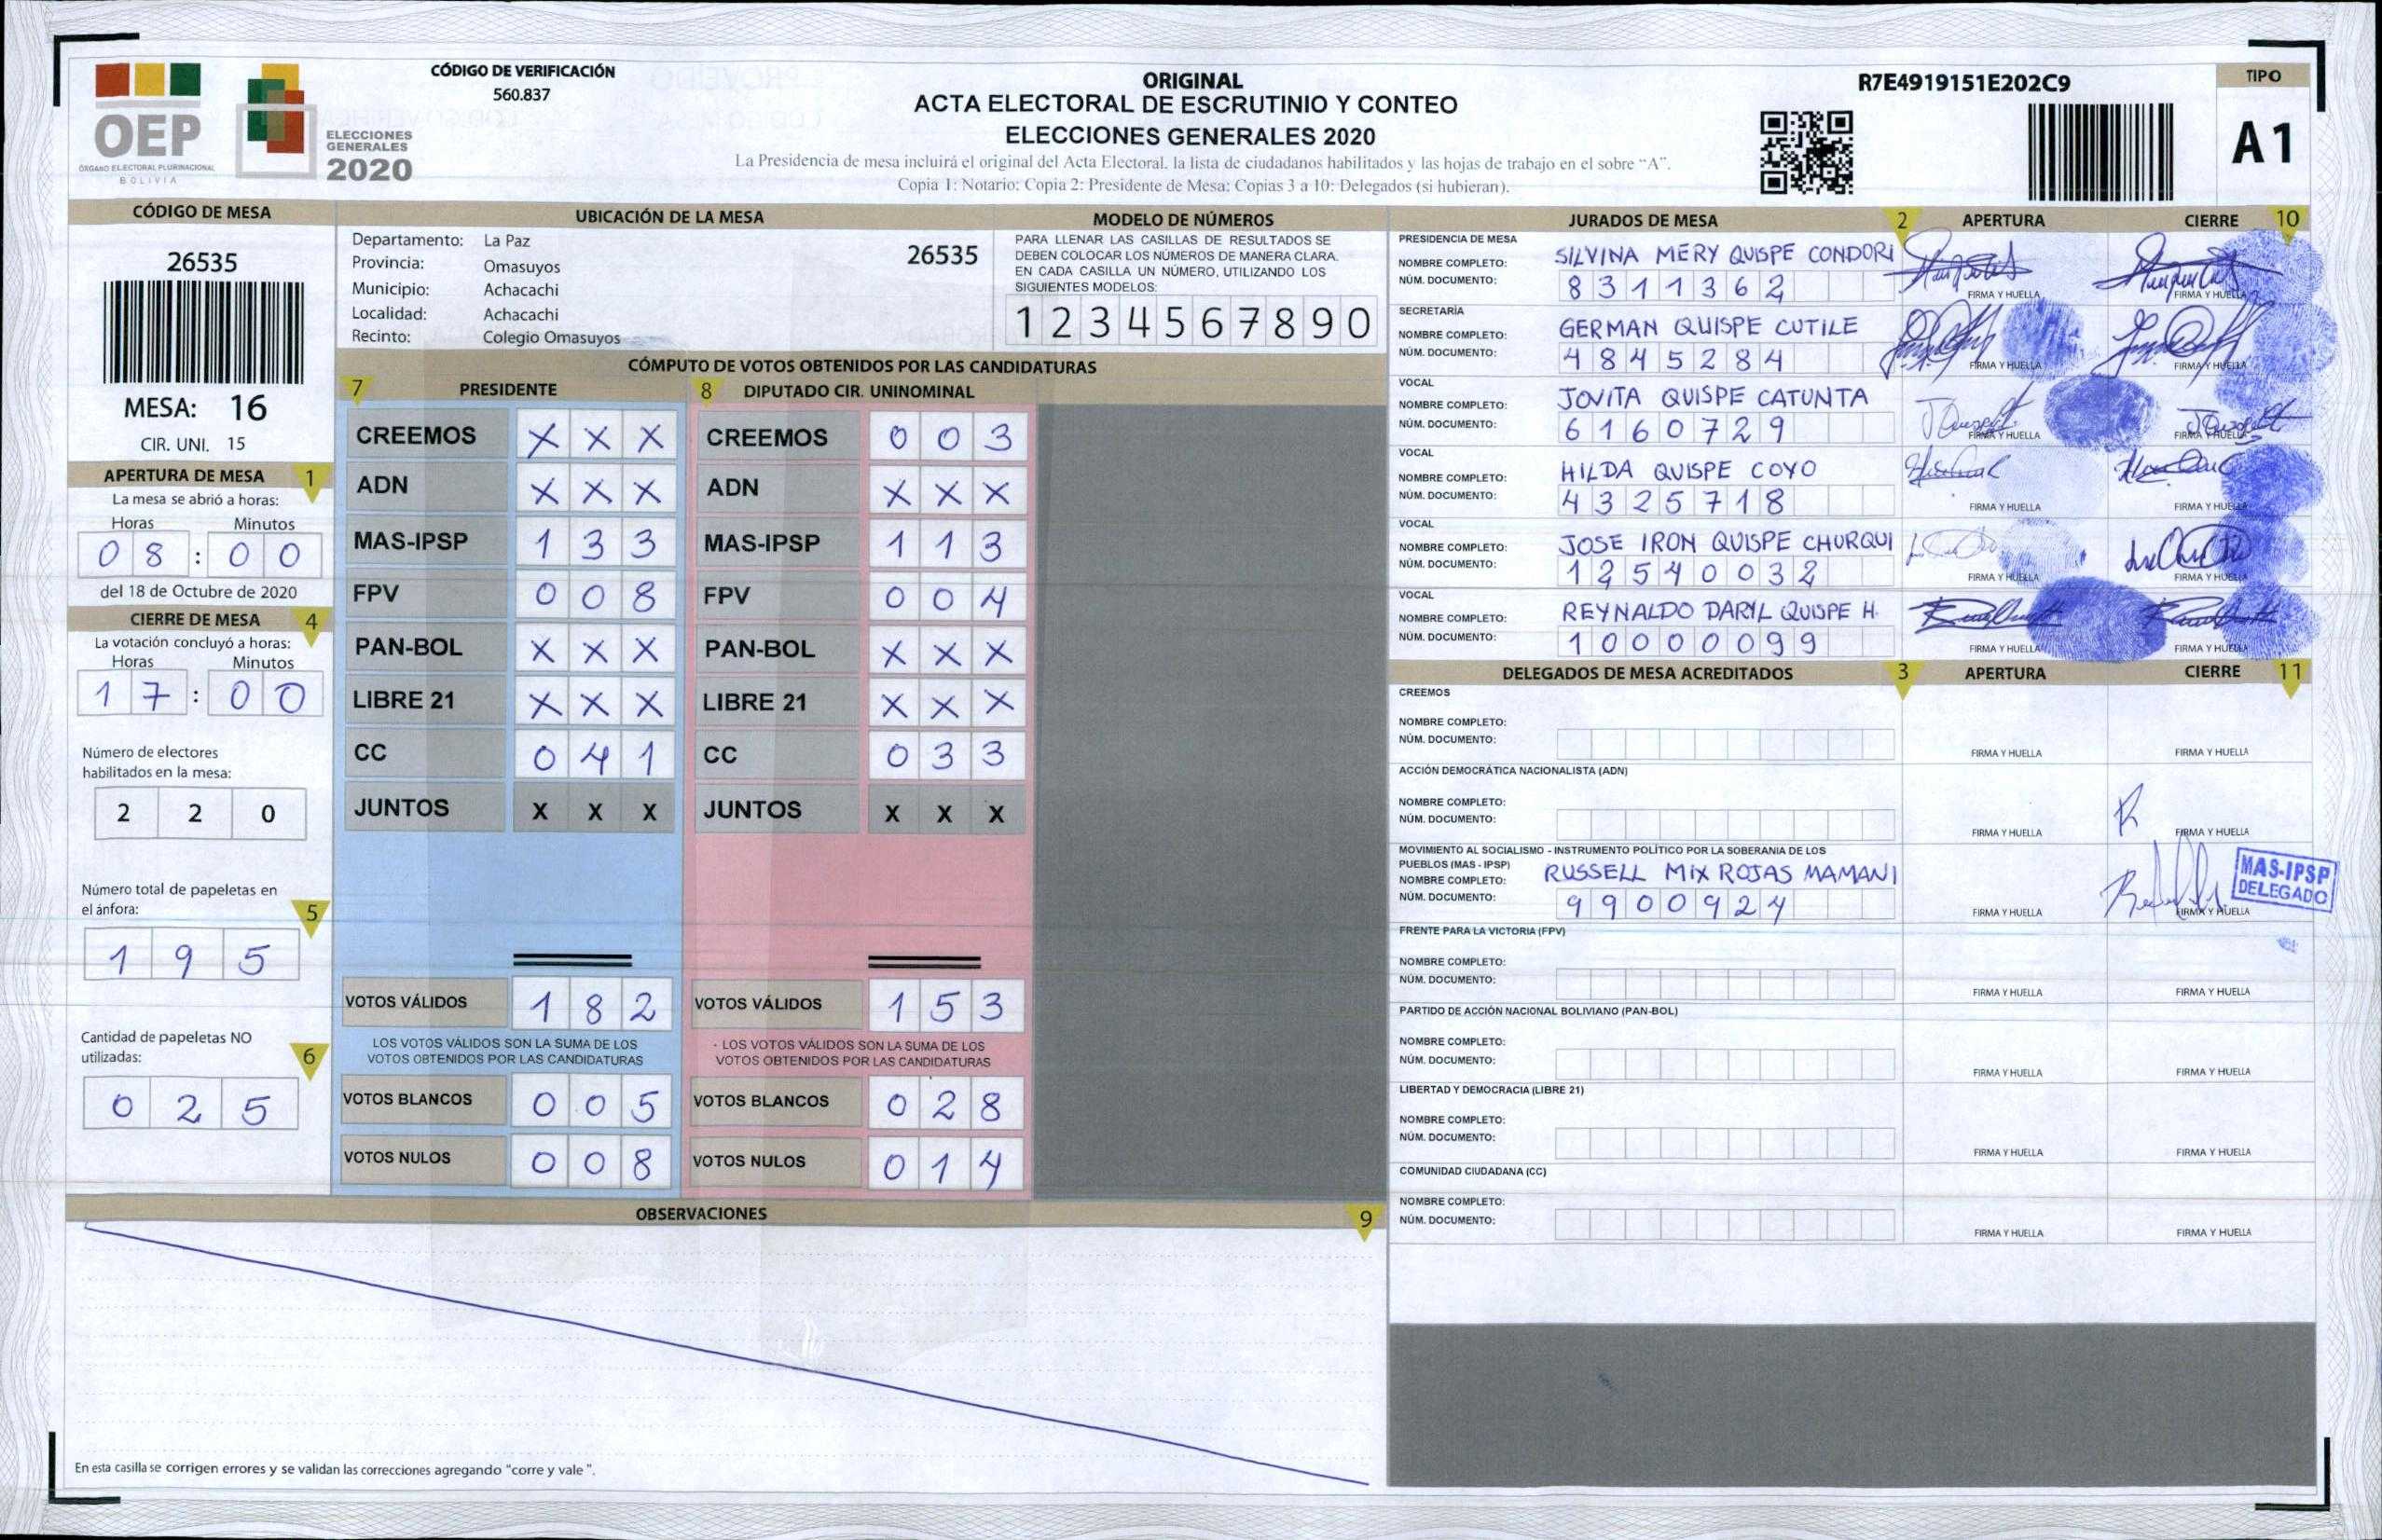 OEP
ÓRGANO ELECTORAL PLURINACIONAL
BOLIVIA
ELECCIONES
GENERALES
2020
CÓDIGO DE VERIFICACIÓN
560.837
ORIGINAL
ACTA ELECTORAL DE ESCRUTINIO Y CONTEO
ELECCIONES GENERALES 2020
La Presidencia de mesa incluirá el original del Acta Electoral, la lista de ciudadanos habilitados y las hojas de trabajo en el sobre "A".
Copia 1: Notario; Copia 2: Presidente de Mesa; Copias 3 a 10: Delegados (si hubieran).
R7E4919151E202C9
TIPO
A1
CÓDIGO DE MESA
26535
MESA: 16
CIR. UNI. 15
APERTURA DE MESA 1
La mesa se abrió a horas:
Horas Minutos
08 : 00
del 18 de Octubre de 2020
CIERRE DE MESA 4
La votación concluyó a horas:
Horas Minutos
17 : 00
Número de electores
habilitados en la mesa:
2 2 0
Número total de papeletas en
el ánfora: 5
1 9 5
Cantidad de papeletas NO
utilizadas: 6
0 2 5
UBICACIÓN DE LA MESA
Departamento: La Paz 26535
Provincia: Omasuyos
Municipio: Achacachi
Localidad: Achacachi
Recinto: Colegio Omasuyos
MODELO DE NÚMEROS
PARA LLENAR LAS CASILLAS DE RESULTADOS SE
DEBEN COLOCAR LOS NÚMEROS DE MANERA CLARA.
EN CADA CASILLA UN NÚMERO, UTILIZANDO LOS
SIGUIENTES MODELOS:
1 2 3 4 5 6 7 8 9 0
CÓMPUTO DE VOTOS OBTENIDOS POR LAS CANDIDATURAS
7 PRESIDENTE 8 DIPUTADO CIR. UNINOMINAL
CREEMOS X X X CREEMOS 0 0 3
ADN X X X ADN X X X
MAS-IPSP 1 3 3 MAS-IPSP 1 1 3
FPV 0 0 8 FPV 0 0 4
PAN-BOL X X X PAN-BOL X X X
LIBRE 21 X X X LIBRE 21 X X X
CC 0 4 1 CC 0 3 3
JUNTOS X X X JUNTOS X X X
VOTOS VÁLIDOS 1 8 2 VOTOS VÁLIDOS 1 5 3
LOS VOTOS VÁLIDOS SON LA SUMA DE LOS - LOS VOTOS VÁLIDOS SON LA SUMA DE LOS
VOTOS OBTENIDOS POR LAS CANDIDATURAS VOTOS OBTENIDOS POR LAS CANDIDATURAS
VOTOS BLANCOS 0 0 5 VOTOS BLANCOS 0 2 8
VOTOS NULOS 0 0 8 VOTOS NULOS 0 1 4
OBSERVACIONES 9
En esta casilla se corrigen errores y se validan las correcciones agregando "corre y vale ".
JURADOS DE MESA 2 APERTURA CIERRE 10
PRESIDENCIA DE MESA
NOMBRE COMPLETO: SILVINA MERY QUISPE CONDORI
NÚM. DOCUMENTO: 8311362
FIRMA Y HUELLA FIRMA Y HUELLA
SECRETARÍA
NOMBRE COMPLETO: GERMAN QUISPE CUTILE
NÚM. DOCUMENTO: 4845284
FIRMA Y HUELLA FIRMA Y HUELLA
VOCAL
NOMBRE COMPLETO: JOVITA QUISPE CATUNTA
NÚM. DOCUMENTO: 6160729
FIRMA Y HUELLA FIRMA Y HUELLA
VOCAL
NOMBRE COMPLETO: HILDA QUISPE COYO
NÚM. DOCUMENTO: 4325718
FIRMA Y HUELLA FIRMA Y HUELLA
VOCAL
NOMBRE COMPLETO: JOSE IRON QUISPE CHURQUI
NÚM. DOCUMENTO: 12540032
FIRMA Y HUELLA FIRMA Y HUELLA
VOCAL
NOMBRE COMPLETO: REYNALDO DARYL QUISPE H.
NÚM. DOCUMENTO: 10000099
FIRMA Y HUELLA FIRMA Y HUELLA
DELEGADOS DE MESA ACREDITADOS 3 APERTURA CIERRE 11
CREEMOS
NOMBRE COMPLETO:
NÚM. DOCUMENTO:
FIRMA Y HUELLA FIRMA Y HUELLA
ACCIÓN DEMOCRÁTICA NACIONALISTA (ADN)
NOMBRE COMPLETO:
NÚM. DOCUMENTO:
FIRMA Y HUELLA FIRMA Y HUELLA
MOVIMIENTO AL SOCIALISMO - INSTRUMENTO POLÍTICO POR LA SOBERANIA DE LOS
PUEBLOS (MAS - IPSP)
NOMBRE COMPLETO: RUSSELL MIX ROJAS MAMANI
NÚM. DOCUMENTO: 9900924
MAS-IPSP
DELEGADO
FIRMA Y HUELLA FIRMA Y HUELLA
FRENTE PARA LA VICTORIA (FPV)
NOMBRE COMPLETO:
NÚM. DOCUMENTO:
FIRMA Y HUELLA FIRMA Y HUELLA
PARTIDO DE ACCIÓN NACIONAL BOLIVIANO (PAN-BOL)
NOMBRE COMPLETO:
NÚM. DOCUMENTO:
FIRMA Y HUELLA FIRMA Y HUELLA
LIBERTAD Y DEMOCRACIA (LIBRE 21)
NOMBRE COMPLETO:
NÚM. DOCUMENTO:
FIRMA Y HUELLA FIRMA Y HUELLA
COMUNIDAD CIUDADANA (CC)
NOMBRE COMPLETO:
NÚM. DOCUMENTO:
FIRMA Y HUELLA FIRMA Y HUELLA